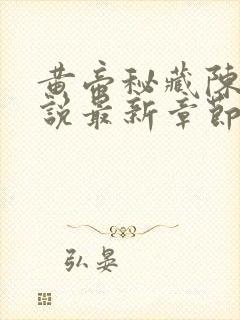 黄帝秘藏陈
說最新章節
弘晏